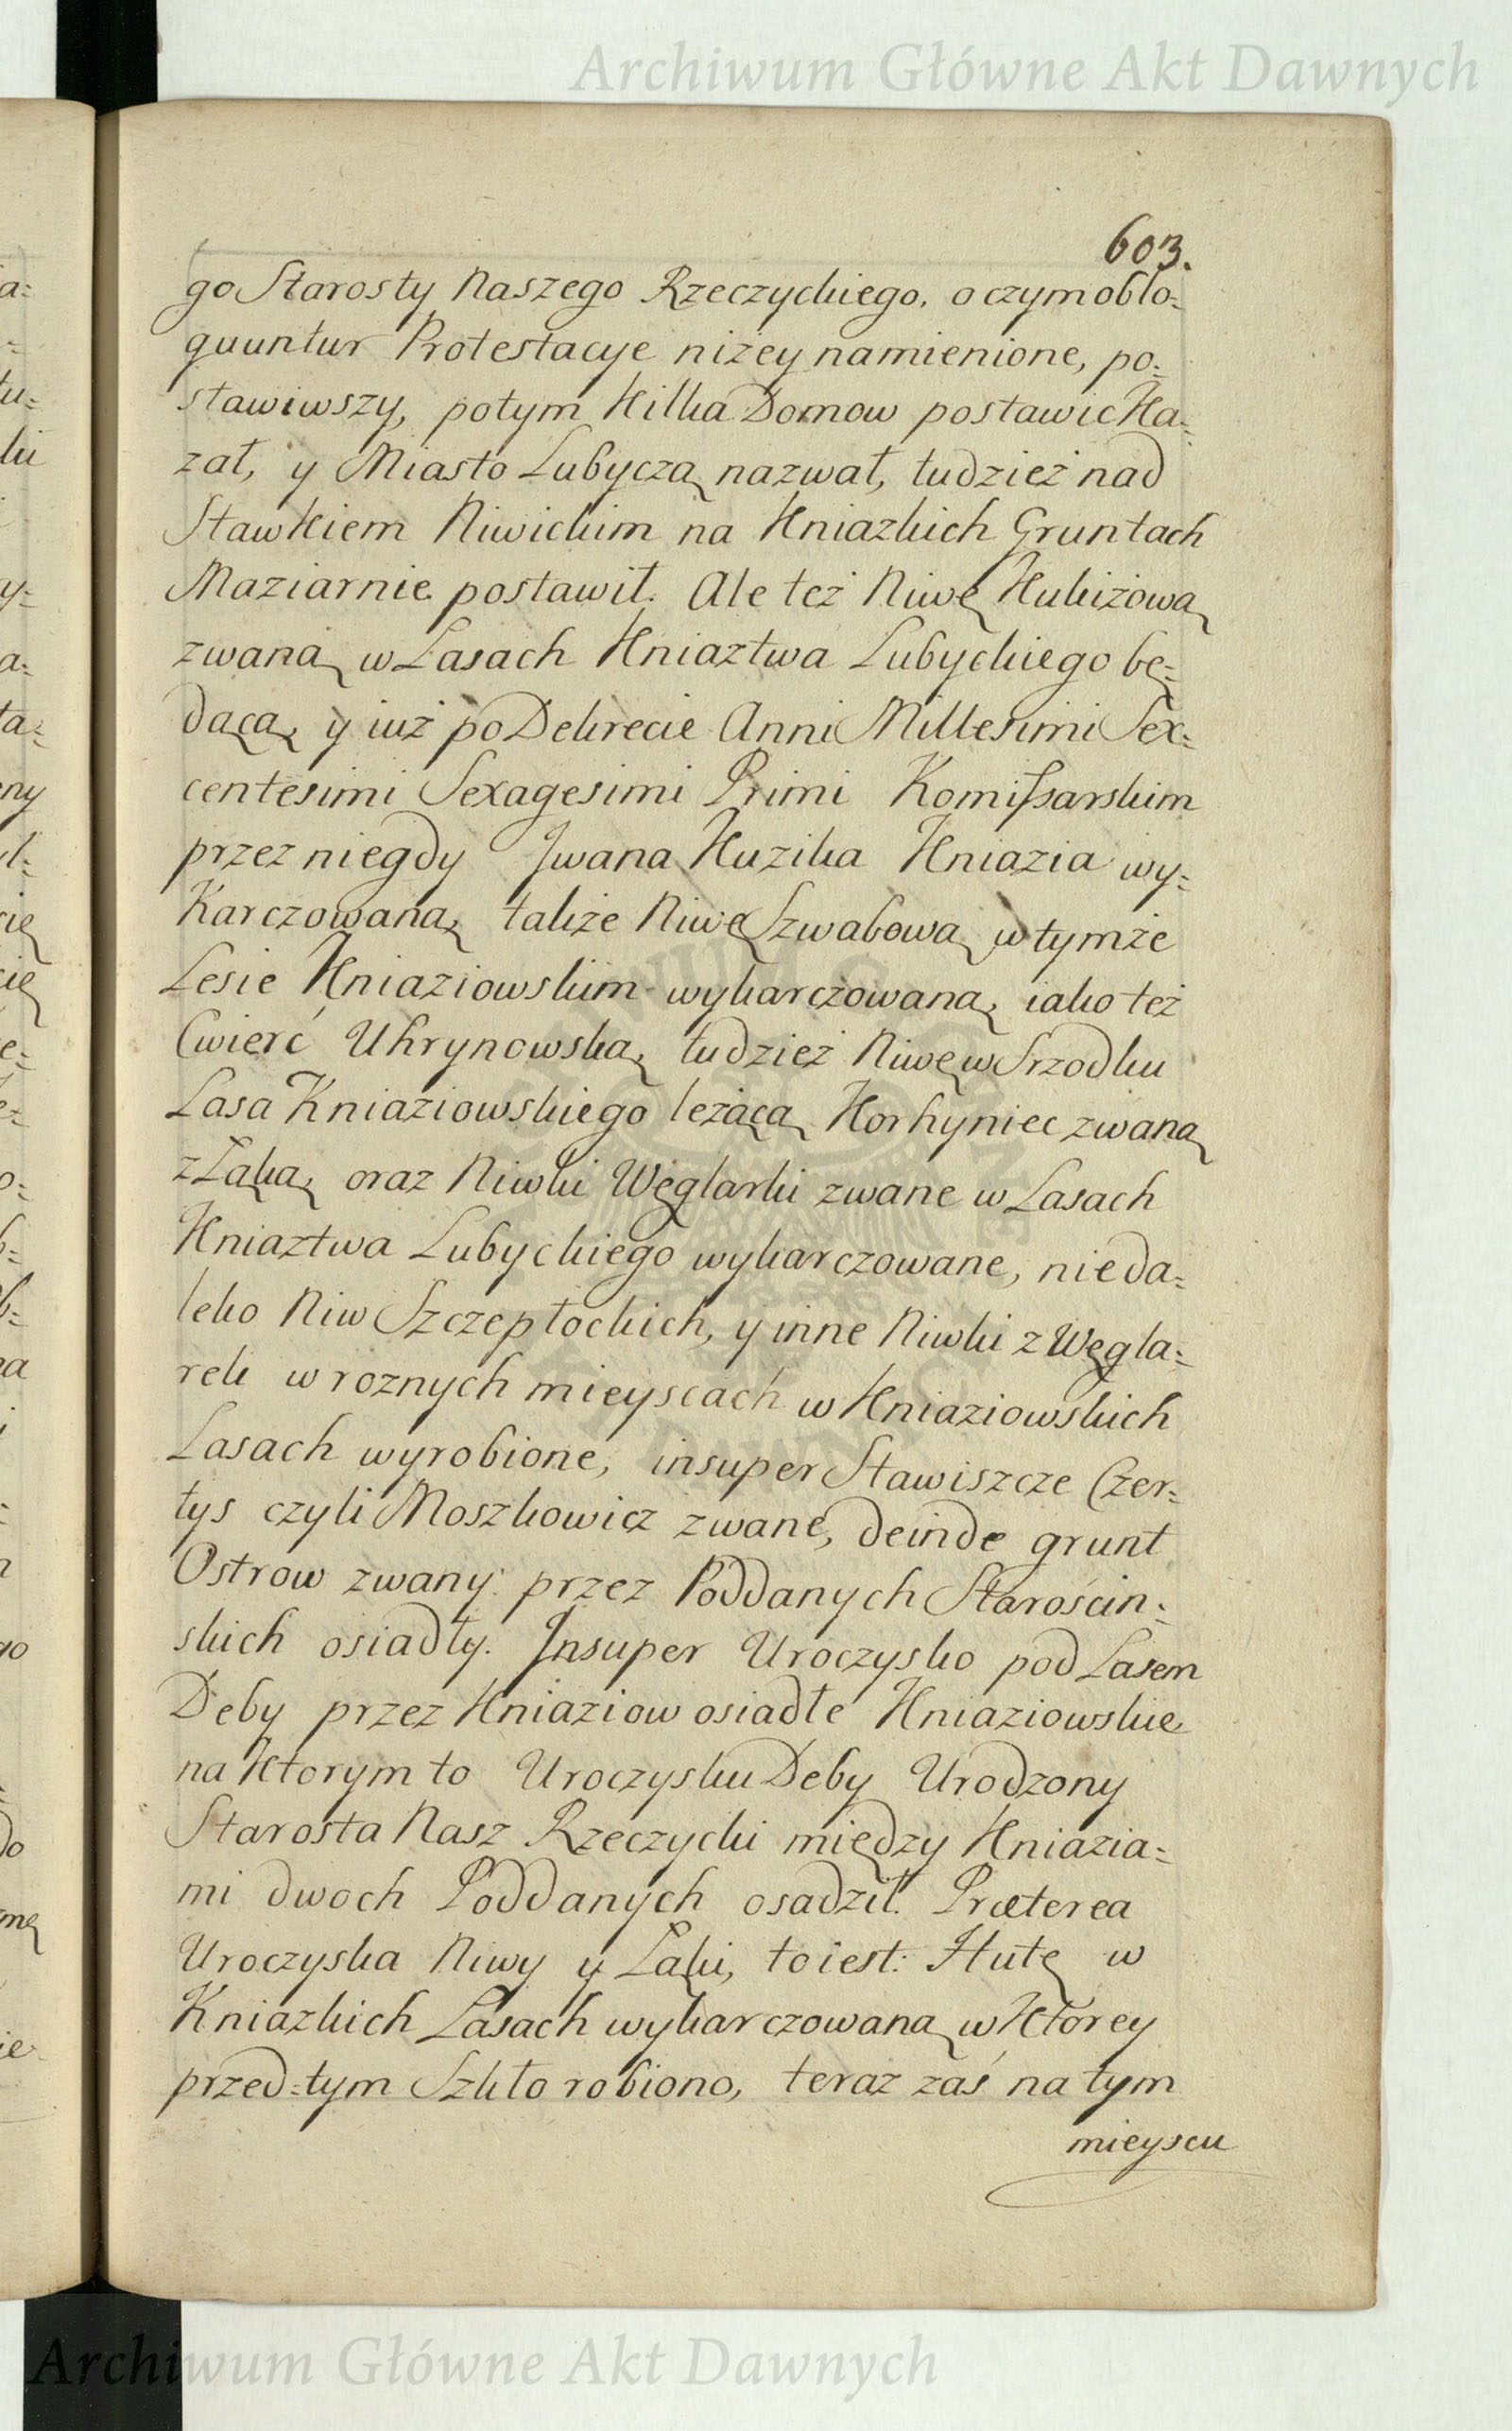 Archiwum Główne Akt Dawnych
603.
go Starosty Naszego Rzeczyckiego, o czym oblo=
quuntur Protestacye niżey namienione, po=
stawiwszy, potym Kilka Domow postawić Ka=
zał, y Miasto Lubyczą nazwał, tudzież nad
Stawkiem Niwickim na Kniazkich Gruntach
Maziarnie postawił. Ale też Niwę Kukiżową
zwaną w Lasach Kniaztwa Lubyckiego bę=
dącą, y iuż po Dekrecie Anni Millesimi Sex=
centesimi Sexagesimi Primi Komissarskim
przez niegdy Jwana Kuzika Kniazia wy=
Karczowaną, także Niwę Szwabową w tymże
Lesie Kniaziowskim wykarczowaną, iako też
Cwierć Uhrynowską, tudzież Niwę w Srzodku
Lasa Kniaziowskiego leżącą Horhyniec zwaną
z Łąką, oraz Niwki Węglarki zwane w Lasach
Kniaztwa Lubyckiego wykarczowane, nieda=
leko Niw Szczepłockich, y inne Niwki z Węgla=
rek w roznych mieyscach w Kniaziowskich
Lasach wyrobione, insuper Stawiszcze Czer=
tys czyli Moszkowicz zwane, deinde grunt
Ostrow zwany przez Poddanych Starościn=
skich osiadły. Insuper Uroczysko pod Lasem
Deby przez Kniaziow osiadłe Kniaziowskie
na Ktorym to Uroczysku Deby Urodzony
Starosta Nasz Rzeczycki między Kniazia=
mi dwoch Poddanych osadził. Præterea
Uroczyska Niwy y Łąki, to iest: Hutę w
Kniazkich Lasach wykarczowaną w Ktorey
przed=tym Szkło robiono, teraz zaś na tym
mieyscu
Archiwum Główne Akt Dawnych